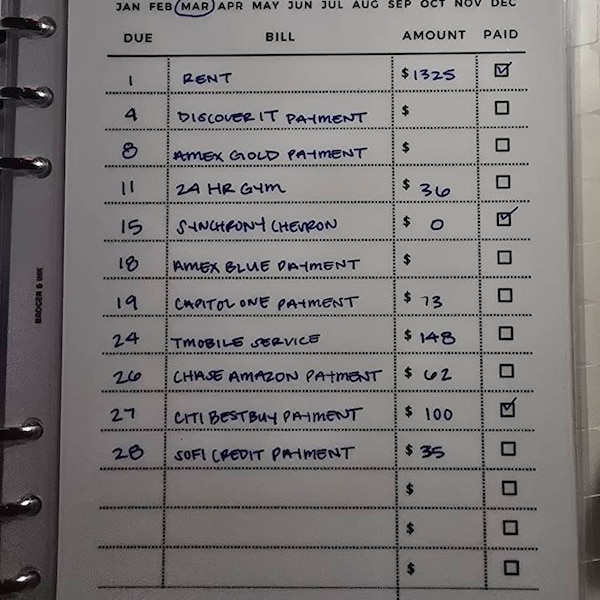 JAN FEB MAR APR MAY JUN JUL AUG SEP OCT NOV DEC
DUE BILL AMOUNT PAID
1 RENT $1325
4 DISCOVER IT PAYMENT $
8 AMEX GOLD PAYMENT $
11 24 HR GYM $ 36
15 SYNCHRONY CHEVRON $ 0
18 AMEX BLUE PAYMENT $
19 CAPITOL ONE PAYMENT $ 73
24 TMOBILE SERVICE $ 148
26 CHASE AMAZON PAYMENT $ 62
27 CITI BESTBUY PAYMENT $ 100
28 SOFI CREDIT PAYMENT $ 35
$
$
$
BADGER & INK